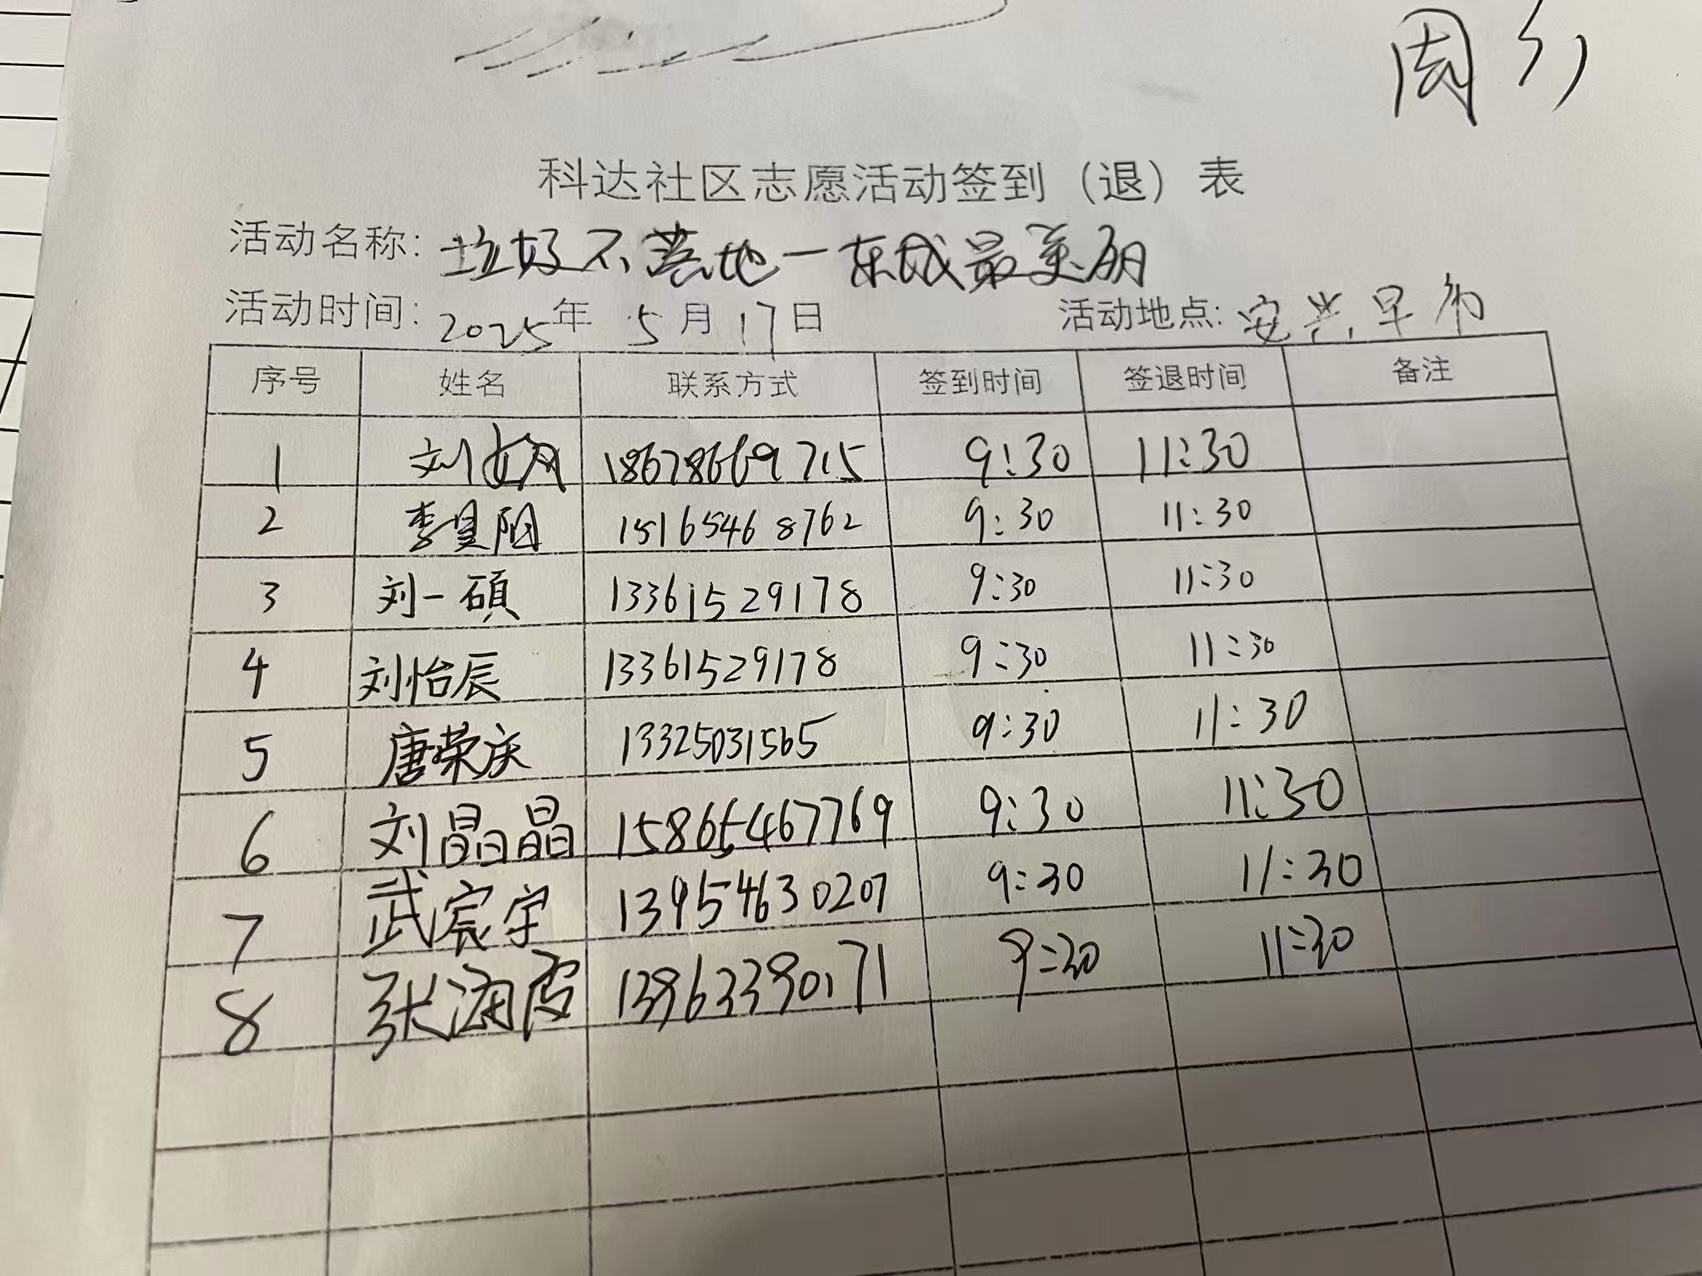 科达社区志愿活动签到（退）表
活动名称: 垃圾不落地一东城最美丽
活动时间: 2025年 5月17日 活动地点: 安兴早市
序号 姓名 联系方式 签到时间 签退时间 备注
1 刘 18678669715 9:30 11:30
2 李昊阳 15165468762 9:30 11:30
3 刘一碩 13361529178 9:30 11:30
4 刘怡辰 13361529178 9:30 11:30
5 唐荣庆 13325031565 9:30 11:30
6 刘晶晶 15865467769 9:30 11:30
7 武宸宇 13954630207 9:30 11:30
8 张海霞 13963390171 9:30 11:30